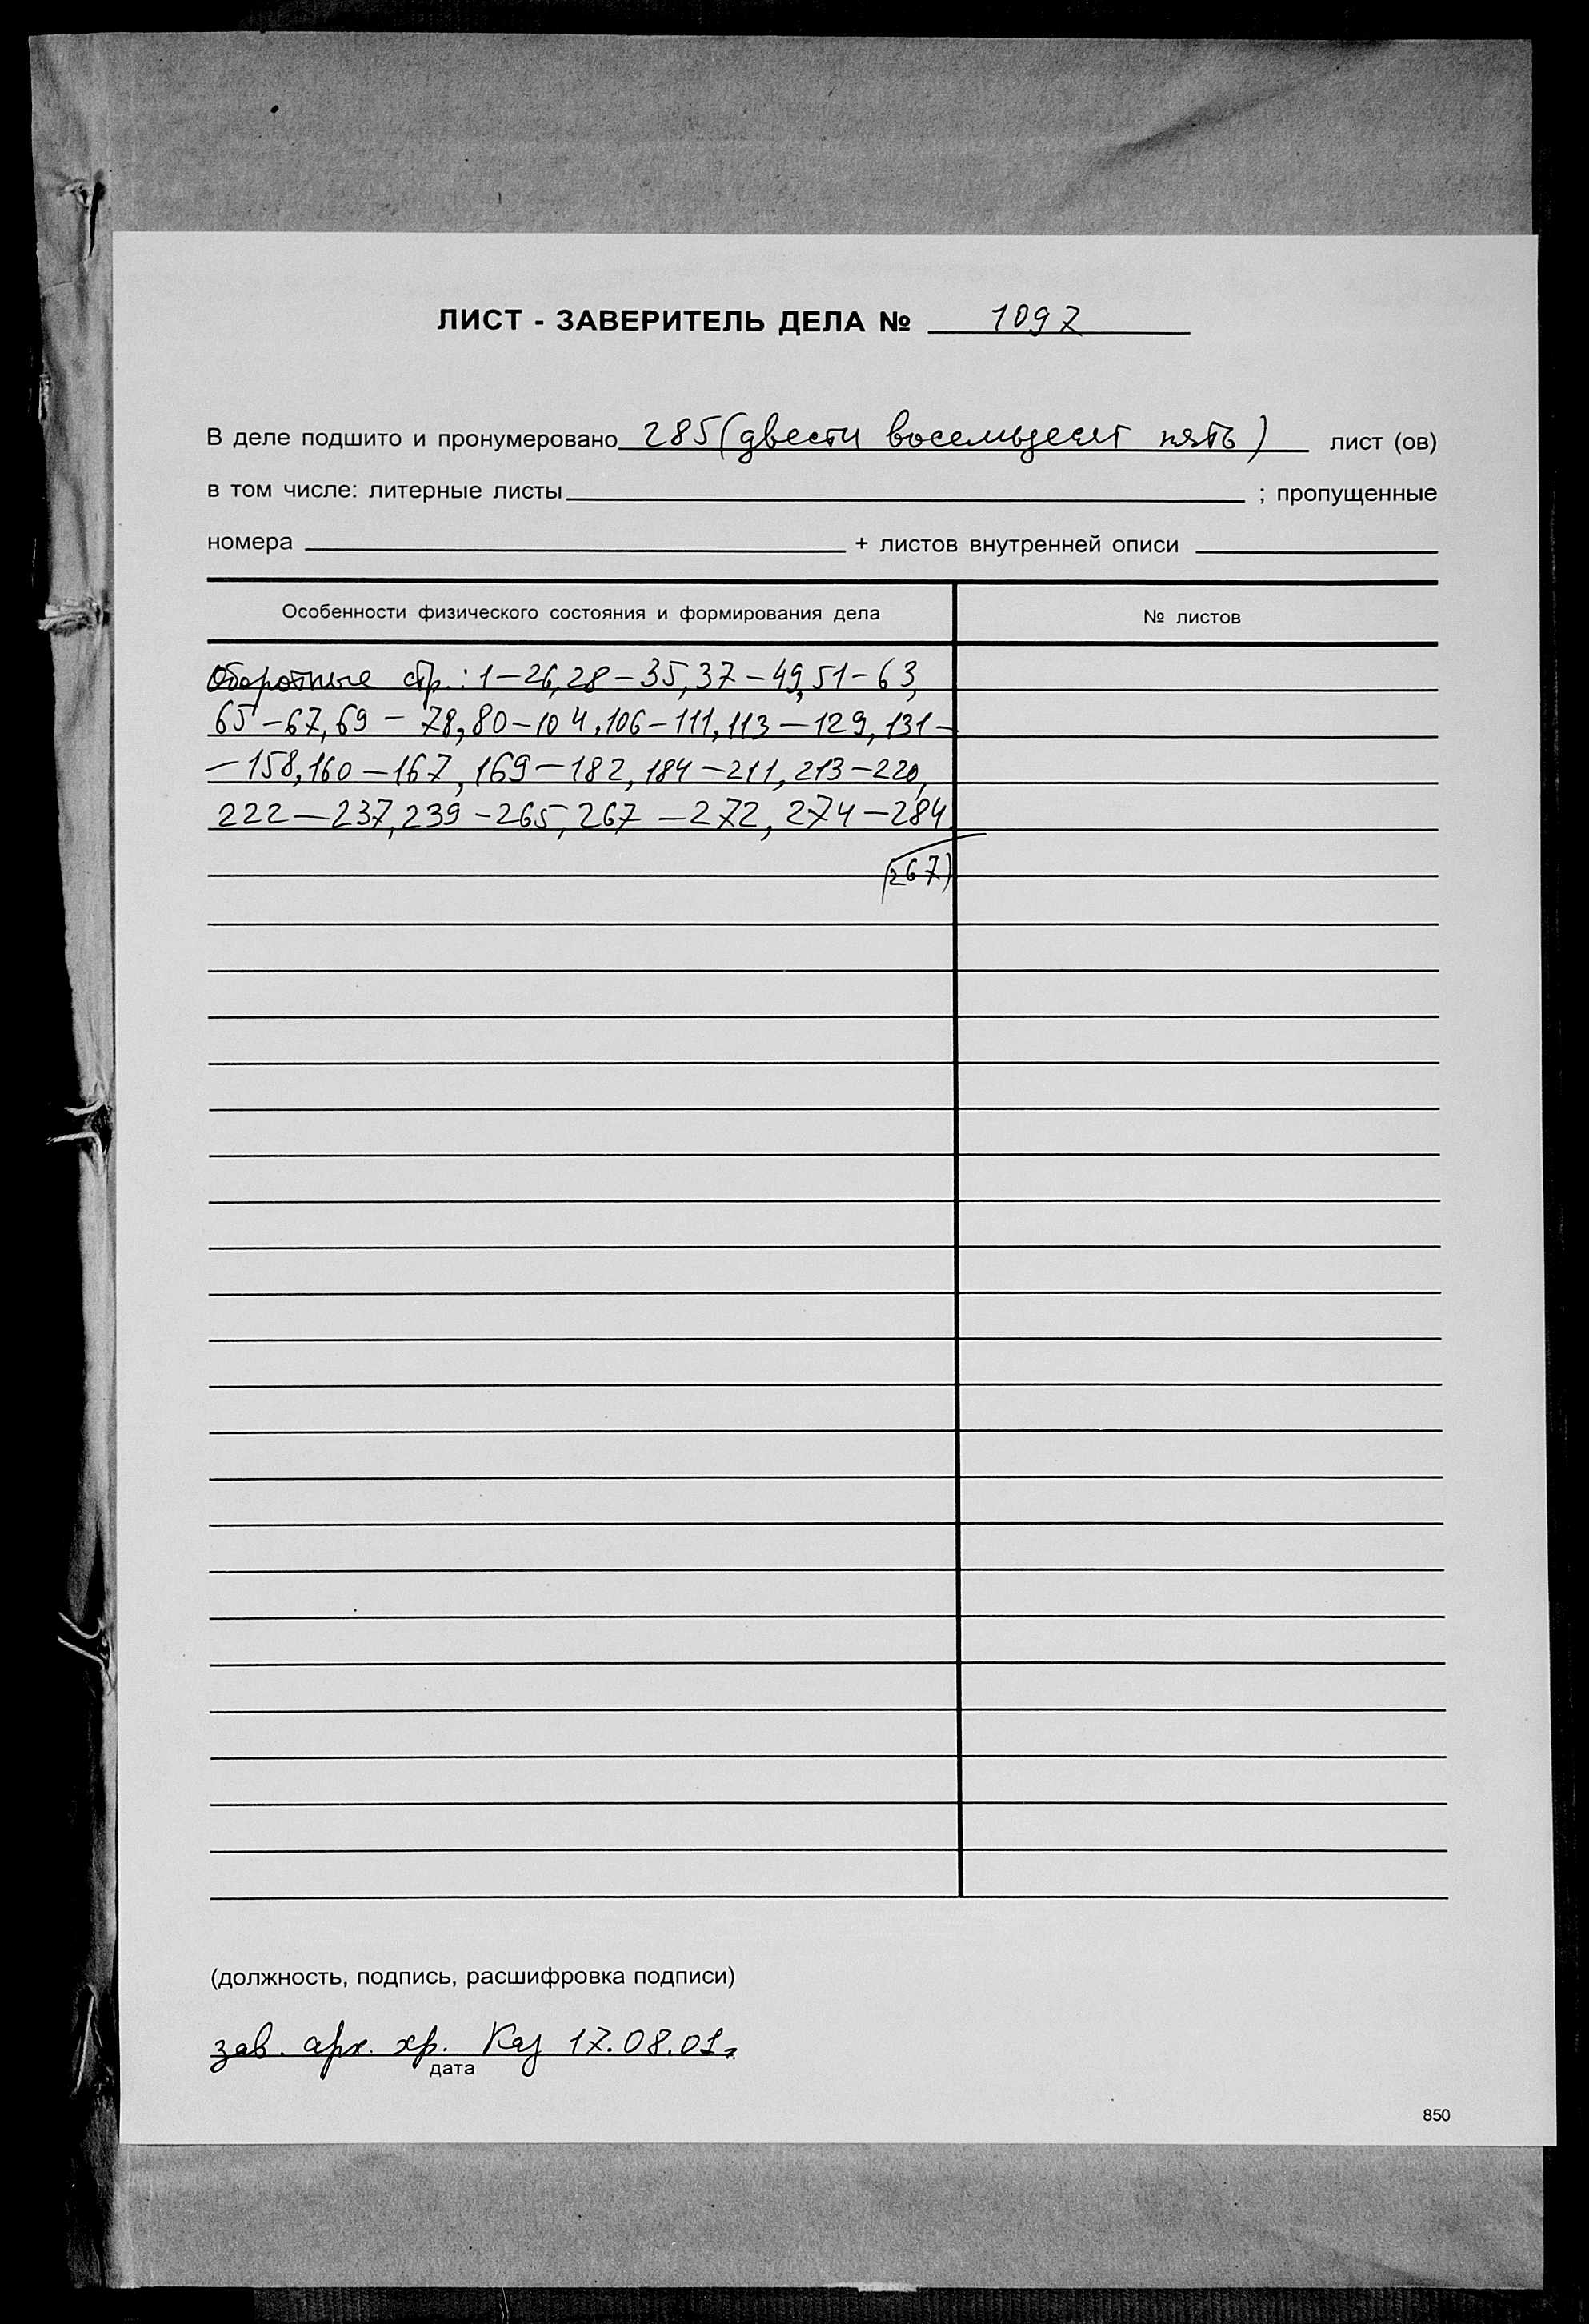 ЛИСТ - ЗАВЕРИТЕЛЬ ДЕЛА № 1097
В деле подшито и пронумеровано 285 (двести восемьдесят пять) лист (ов)
в том числе: литерные листы ; пропущенные
номера + листов внутренней описи
Особенности физического состояния и формирования дела № листов
Оборотные стр.: 1-26, 28-35, 37-49, 51-63,
65-67, 69-78, 80-104, 106-111, 113-129, 131-
-158, 160-167, 169-182, 184-211, 213-220,
222-237, 239-265, 267-272, 274-284
(267)
(должность, подпись, расшифровка подписи)
зав. арх. хр. 17.08.01г.
дата
850